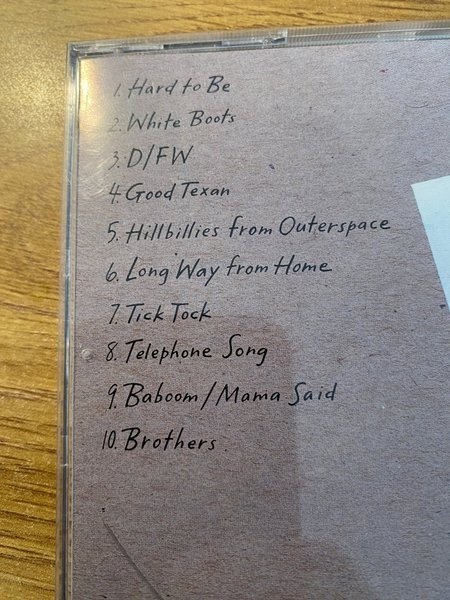 1. Hard to Be
2. White Boots
3. D/FW
4. Good Texan
5. Hillbillies from Outerspace
6. Long Way from Home
7. Tick Tock
8. Telephone Song
9. Baboom/Mama Said
10. Brothers